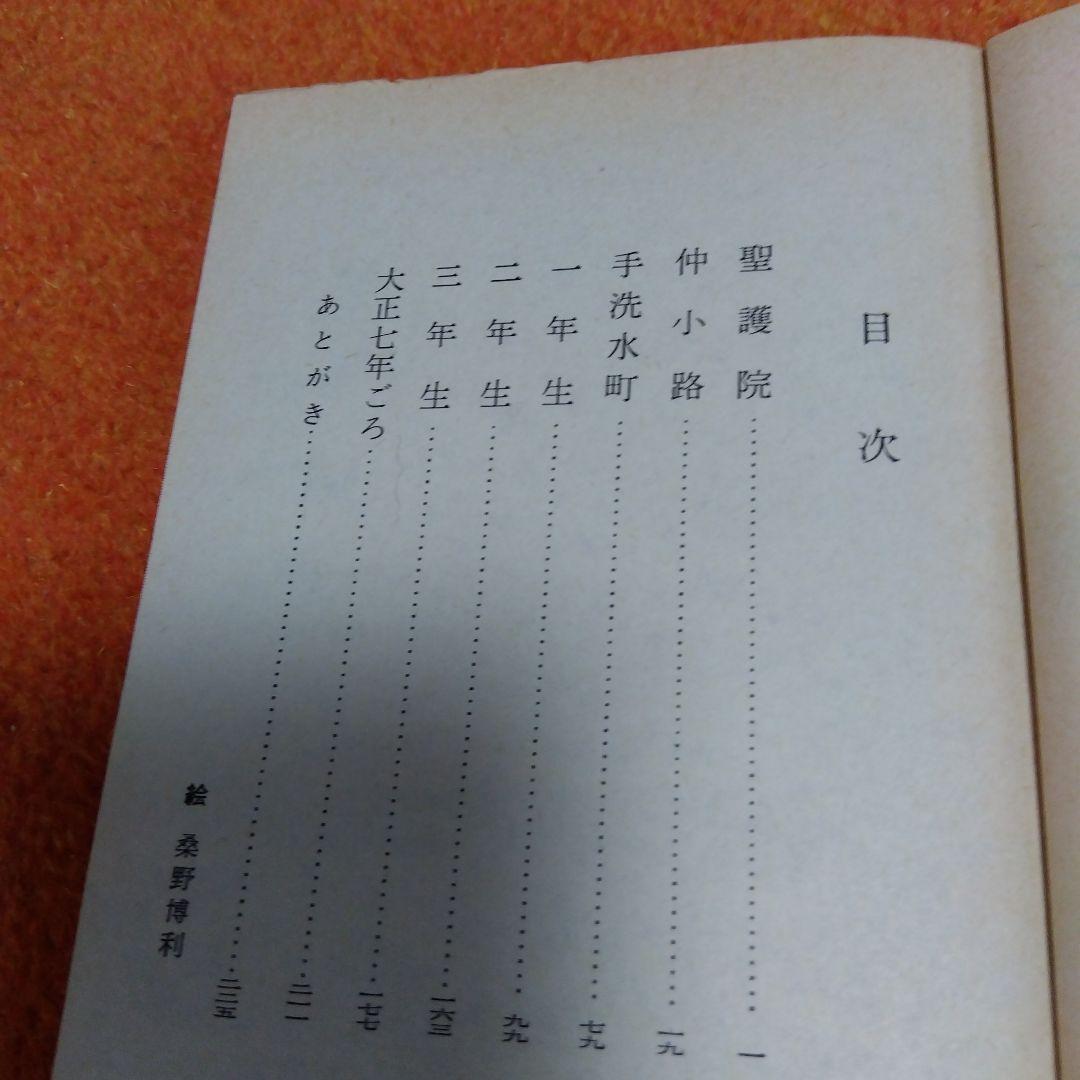 目次
聖護院……一
仲小路……一九
手洗水町……七九
一年生……九九
二年生……一六三
三年生……一七七
大正七年ごろ……二一一
あとがき……二三五
絵 桑野博利